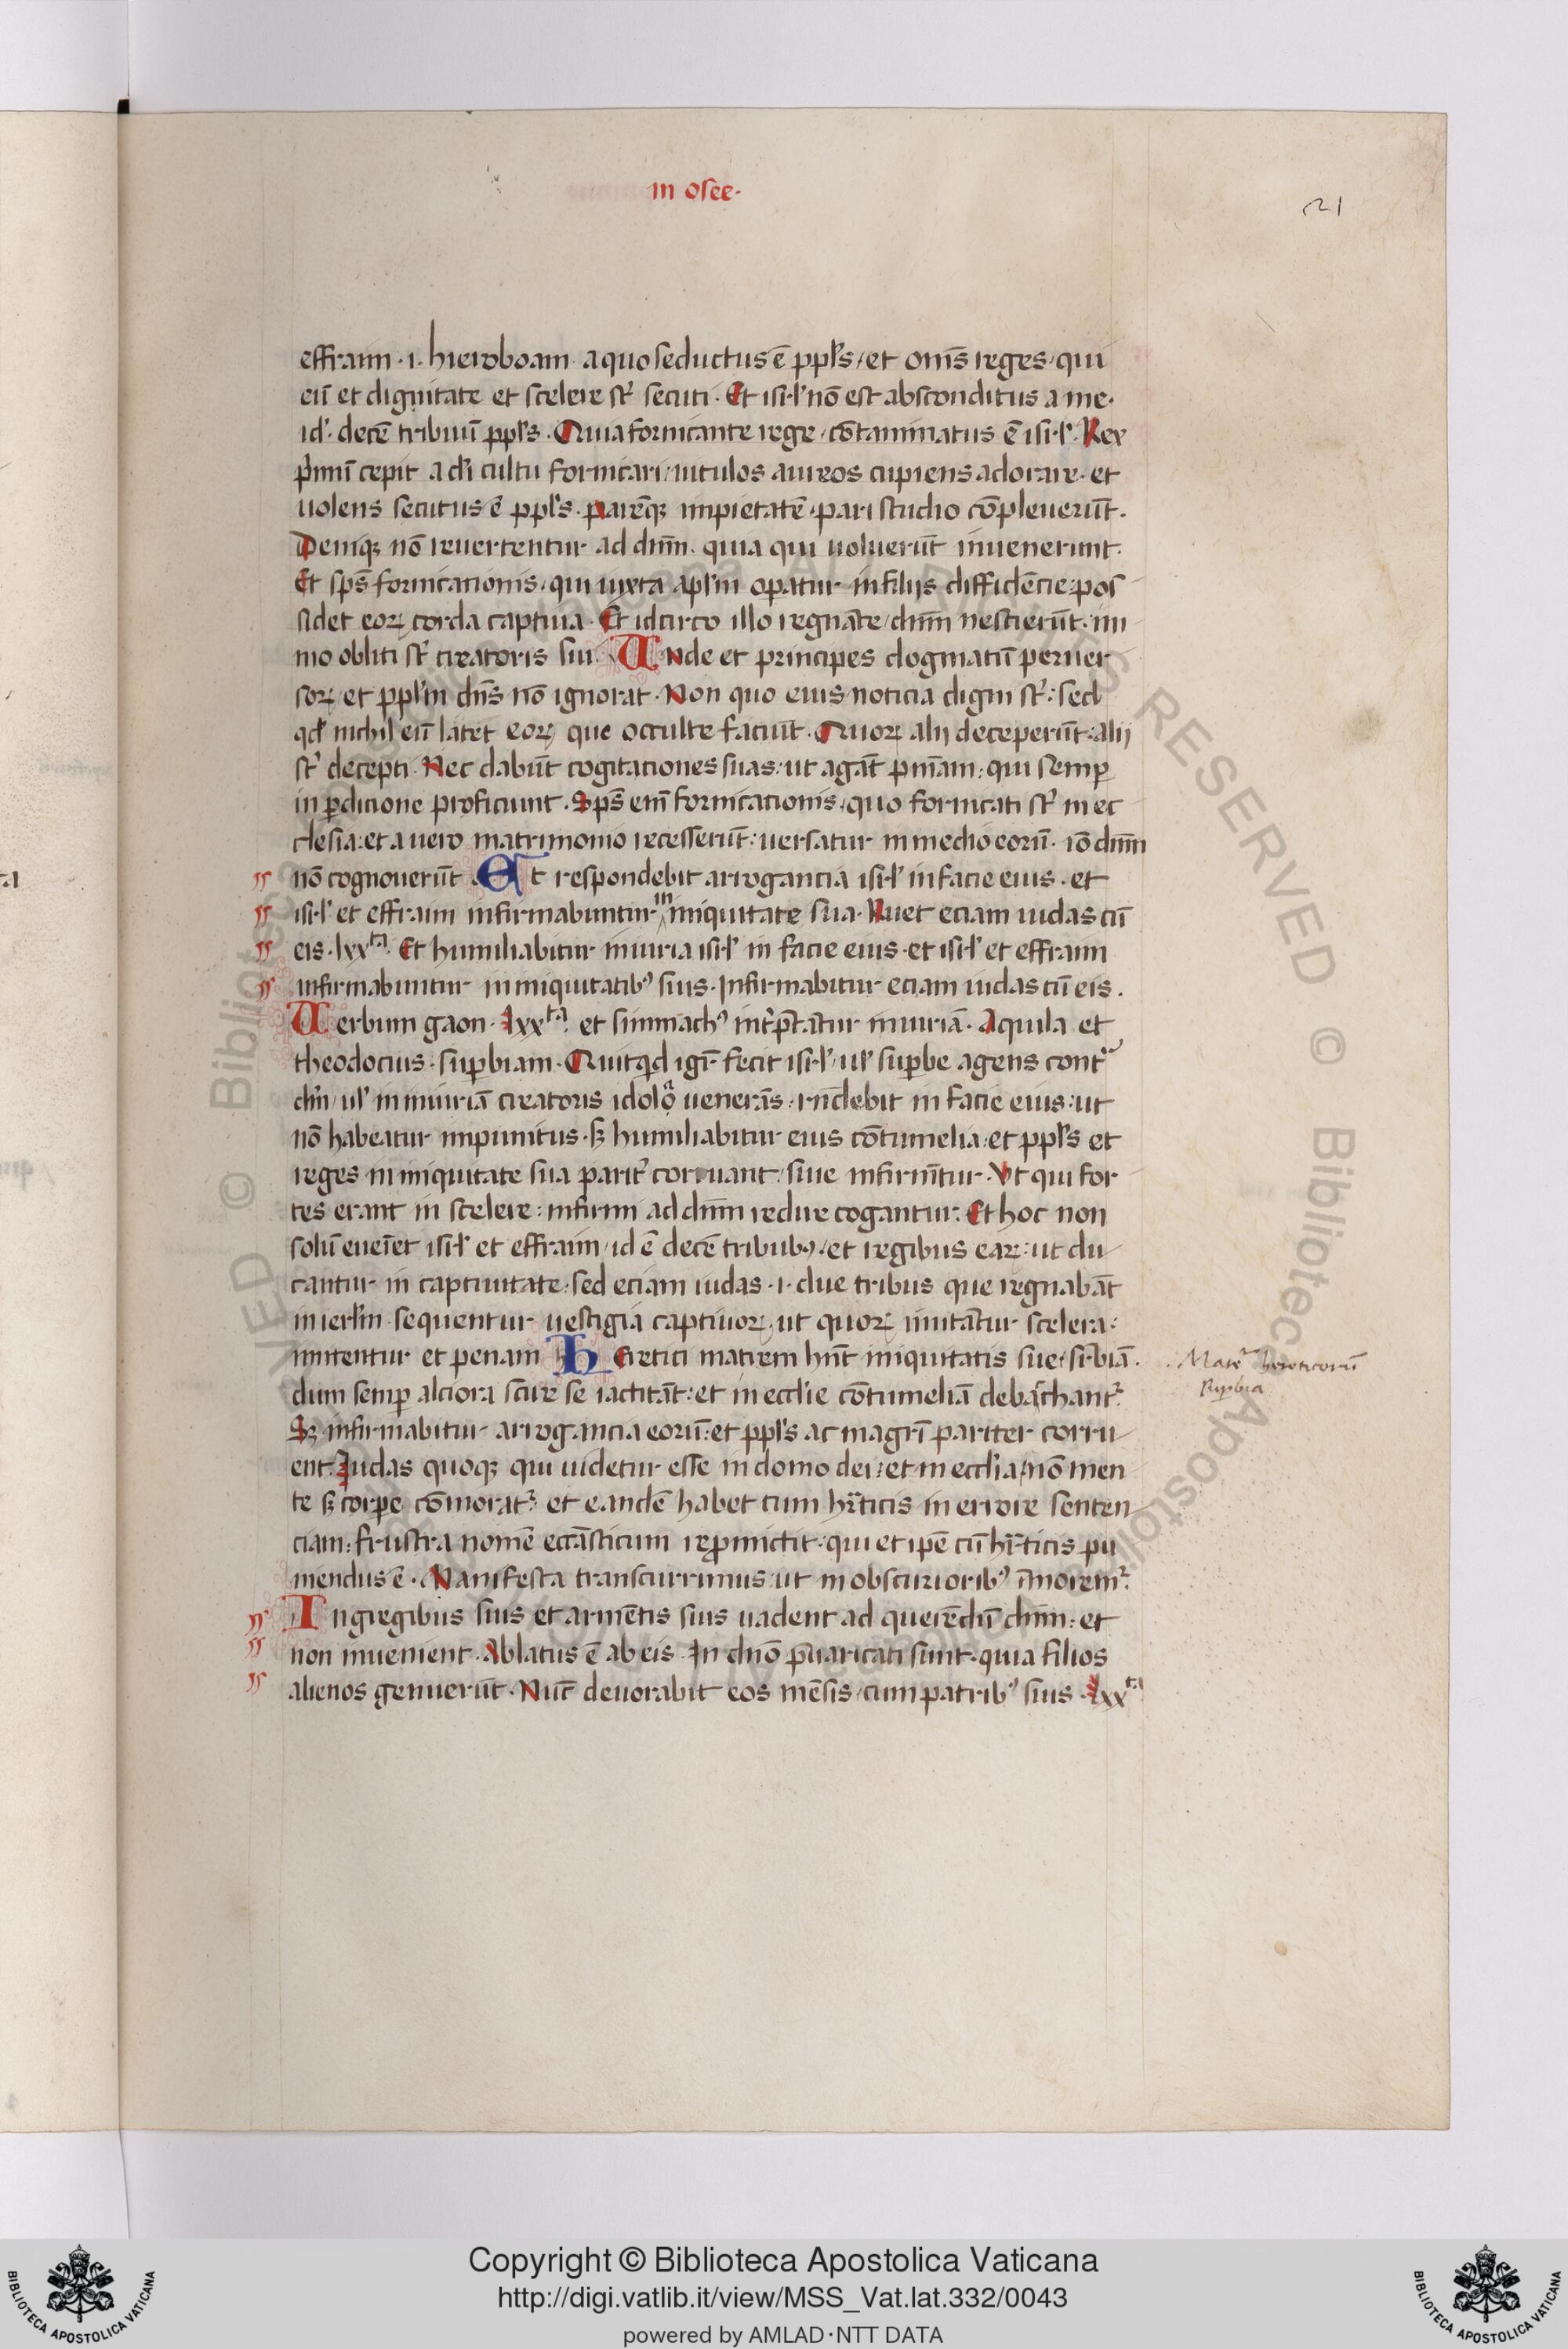 in osee·
21
effraim · i · hieroboam · a quo seductus ē pplˀs / et om̄s reges · qui
eū et dignitate et scelere st̄ secuti · Et isrl̄ nō est absconditus a me ·
id̄ · decē tribuū pplˀs · Quia fornicante rege · cōtaminatus ē isrl̄ · Rex
pͥmū cepit a dī cultu fornicari / uitulos aureos cupiens adorare · et
uolens secutus ē pplˀs · parēqꝫ impietatē · pari studio cōpleuerūt ·
Deniqꝫ nō reuertentur ad dn̄m · quia qui uoluerūt inuenerunt ·
Et sps̄ fornicationis · qui iuxta apl̄m oꝑatur in filijs diffidēcie · pos
sidet eoꝝ corda captiua · Et idcirco illo regnāte / dn̄m nescierūt · im
mo obliti st̄ creatoris sui · Unde et principes dogmatū peruer
soꝝ / et pplˀm dn̄s nō ignorat · Non quo eius noticia digni st̄ : sed
qd̄ nichil eū latet eoꝝ que occulte faciūt · Quoꝝ alij deceperūt · alij
st̄ decepti · Nec dabūt cogitationes suas · ut agāt pn̄iam : qui semꝑ
in ꝑditione proficiunt · Sps̄ eni̅ fornicationis · quo fornicati st̄ in ec
clesia : et a uero matrimonio recesserūt : uersatur in medio eorū · iō dn̄m
nō cognouerūt · Et respondebit arrogancia isrl̄ in facie eius · et
isrl̄ et effraim infirmabuntur in iniquitate sua · Ruet eciam iudas cū
eis · lxxͭᵃ · Et humiliabitur iniuria isrl̄ in facie eius · et isrl̄ et effraim
infirmabuntur in iniquitatibꝰ suis · Infirmabitur eciam iudas cū eis ·
Uerbum gaon · lxxͭᵃ · et simmachꝰ int̓p̄tātur iniuriā · Aquila et
theodocius · suꝑbiam · Quitqd igī fecit isrl̄ · ul̄ suꝑbe agens contͣ
dm̄ / ul̄ in iniuriā creatoris idolͣ uenerās · rn̄debit in facie eius : ut
nō habeatur impunitus · sꝫ humiliabitur eius cōtumelia · et pplˀs et
reges in iniquitate sua parit̓ corruant / siue infirmētur · Ut qui for
tes erant in scelere : infirmi ad dn̄m redire cogantur · Et hoc non
solū eueīet isrl̄ et effraim / id ē decē tribubꝰ · et regibus eaꝝ : ut du
cantur in captiuitate · sed eciam iudas · i · due tribus que regnabāt
in ierl̄m · sequentur uestigia captiuoꝝ · ut quoꝝ imitātur scelera ·
imitentur et penam Heretici matrem hn̄t iniquitatis sue / suꝑbiā ·
dum semꝑ alciora scire se iactitāt · et in eccl̄ie cōtumeliā debachantᷣ
Sꝫ infirmabitur arrogancia eorū · et pplˀs ac magrī pariter corru
ent · Iudas quoqꝫ qui uidetur esse in domo dei · et in eccl̄ia / nō men
te sꝫ corꝑe cōmoratᷣ · et eandē habet cum hr̄ticis in errore senten
ciam : frustra nomē eccā̄sticum repromictit · qui et ip̄e cū hr̄ticis pu
niendus ē · Manifesta transcurrimus · ut in obscurioribꝰ īmoremᷣ ·
In gregibus suis et armētis suis uadent ad querēdū dn̄m · et
non inuenient · Ablatus ē ab eis · In dn̄o p̄uaricati sunt · quia filios
alienos genuerūt · Nūc deuorabit eos mēsis / cum patribꝰ suis · lxxͭᵃ
Mater hereticorū
supbia
Copyright © Biblioteca Apostolica Vaticana
http://digi.vatlib.it/view/MSS_Vat.lat.332/0043
powered by AMLAD·NTT DATA
BIBLIOTECA APOSTOLICA VATICANA
BIBLIOTECA APOSTOLICA VATICANA